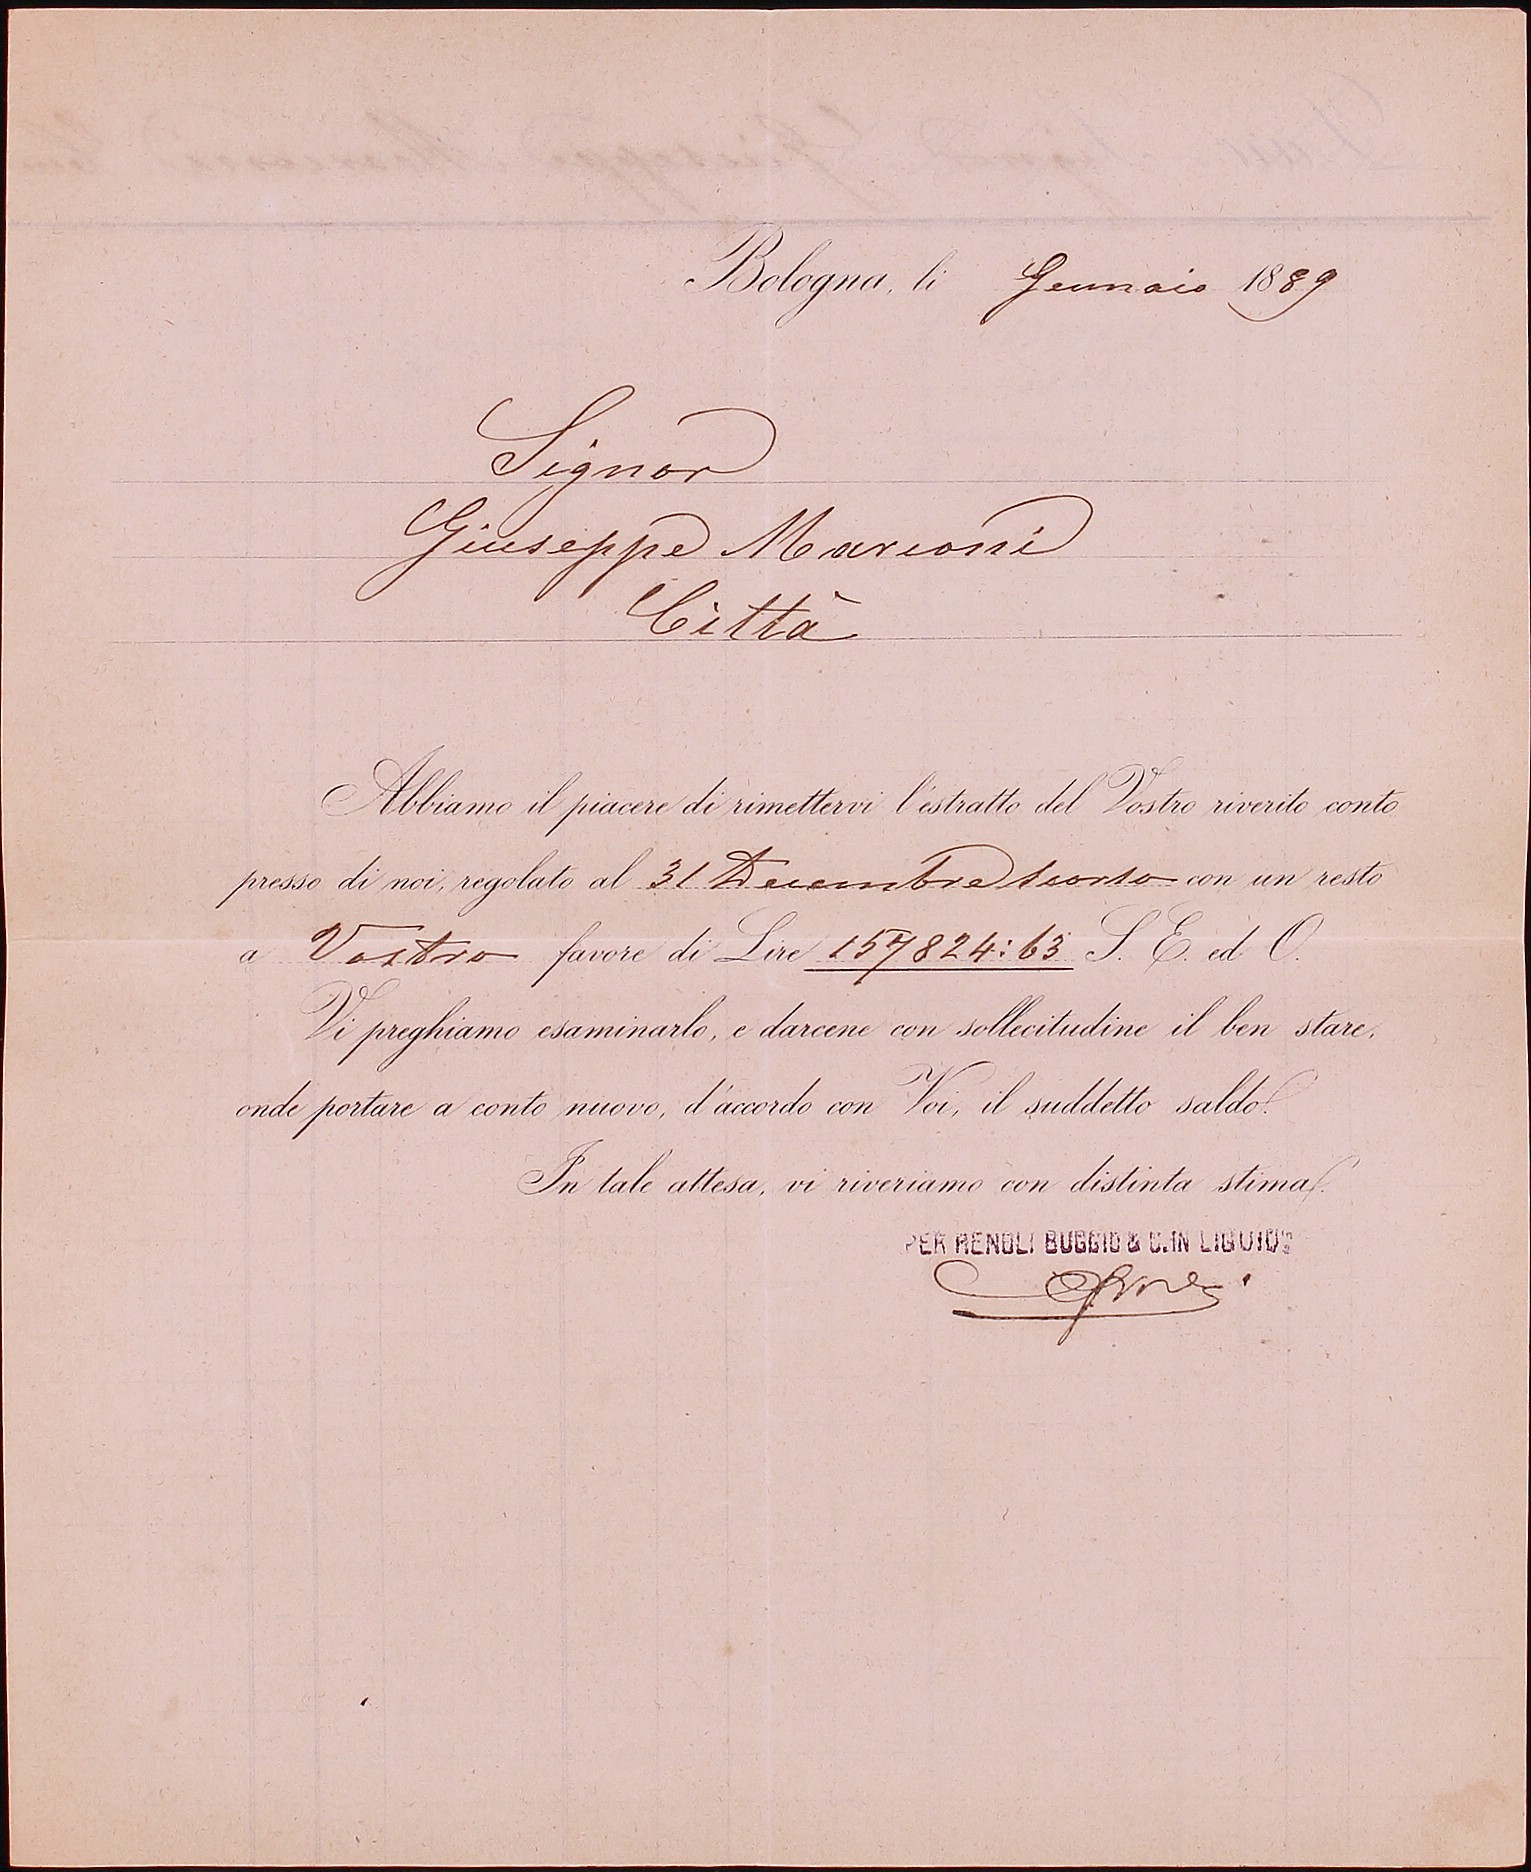 Bologna, li Gennaio 1889
Signor
Giuseppe Marconi
Città
Abbiamo il piacere di rimettervi l'estratto del Vostro riverito conto
presso di noi, regolato al 31 Decembre scorso con un resto
a Vostro favore di Lire 157824:63 S. E. ed O.
Vi preghiamo esaminarlo, e darcene con sollecitudine il ben stare,
onde portare a conto nuovo, d'accordo con Voi, il suddetto saldo.
In tale attesa, vi riveriamo con distinta stima.
PER RENOLI BUGGIO & C. IN LIQUIDⁿᵉ